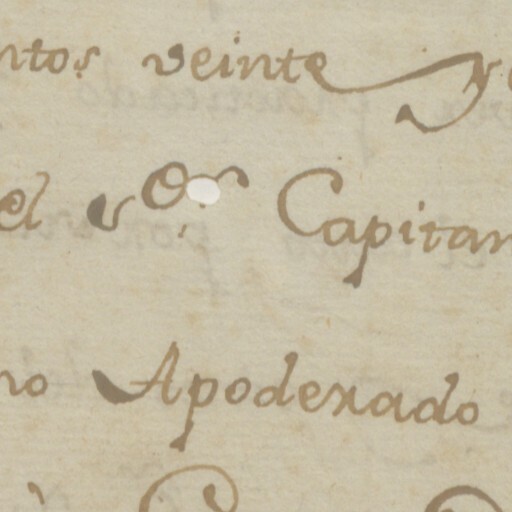 ntos veinte y
el S.or Capitan
no Apoderado